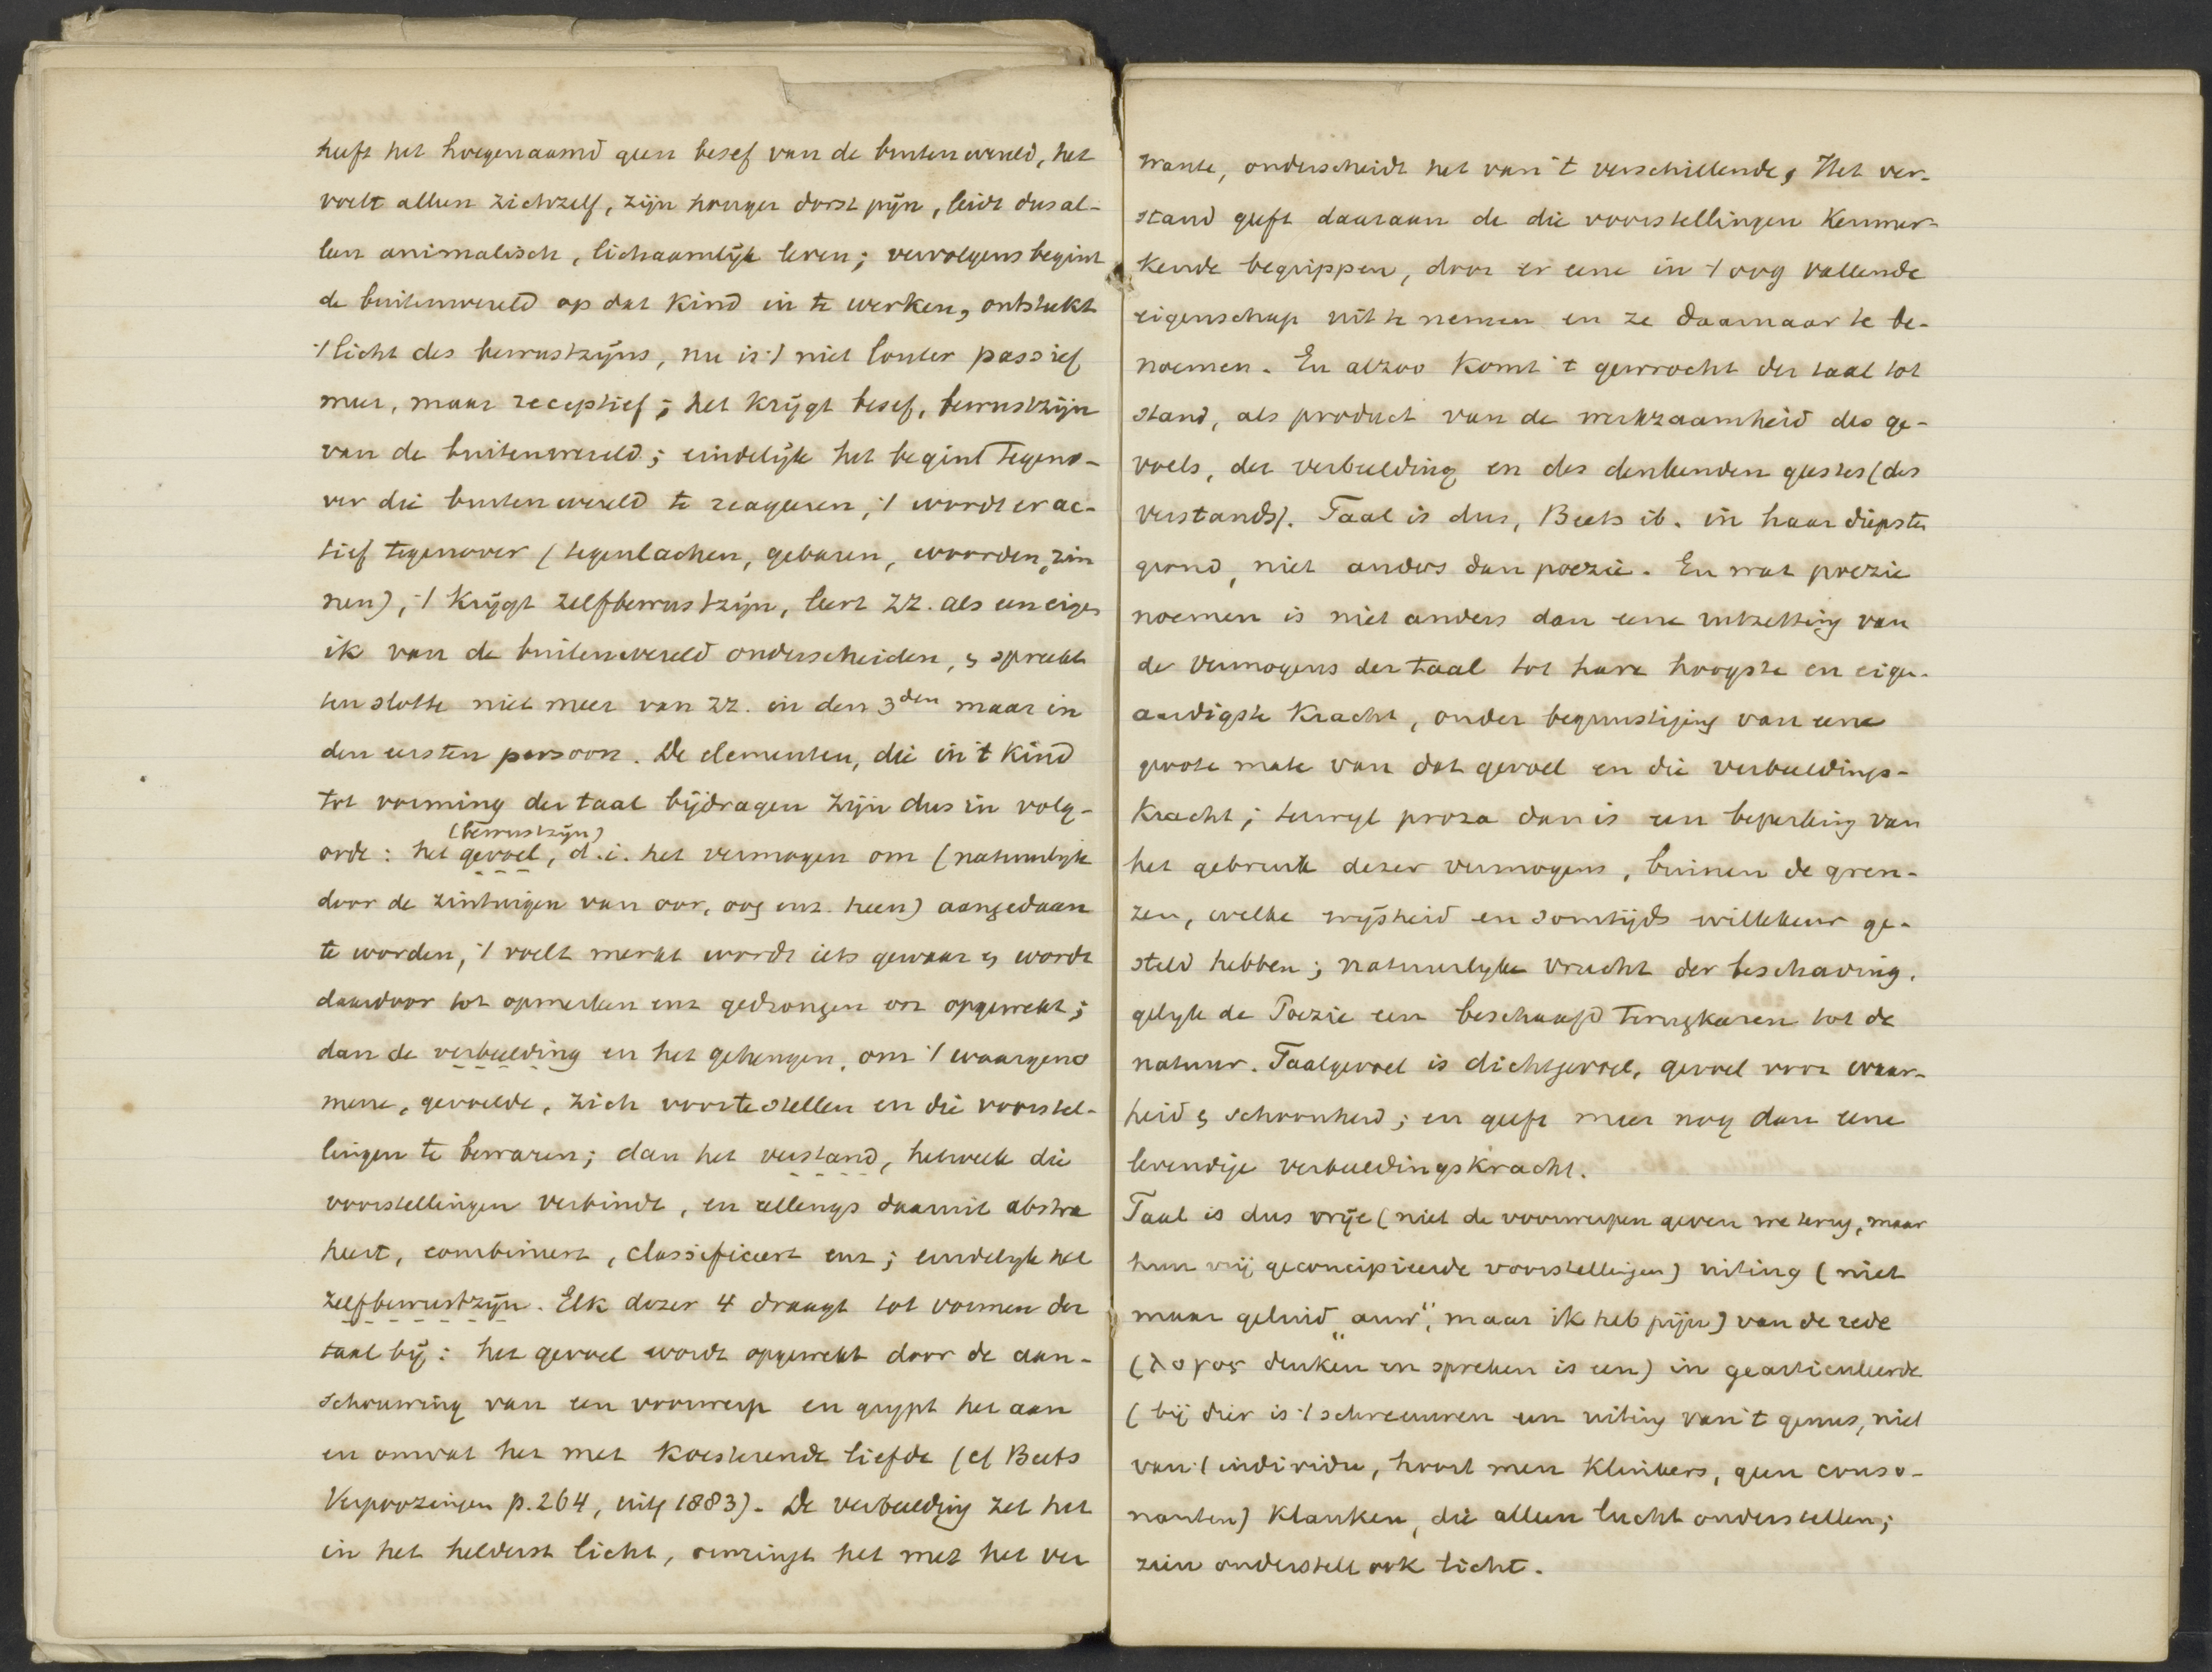 heeft het hoegenaamd geen besef van de buitenwereld, het
voelt alleen zichzelf, zijn honger dorst pijn, leidt dus al-
leen animalisch, lichaamlijk leven; vervolgens begint
de buitenwereld op dat kind in te werken, ontsteekt
't licht des bewustzijns, nu is 't niet louter passief
meer, maar receptief; het krijgt besef, bewustzijn
van de buitenwereld; eindelijk het begint tegeno-
ver die buitenwereld te reageren, 't wordt er ac-
tief tegenover (tegenlachen, gebaren, woorden, zin
nen), 't krijgt zelfbewustzijn, leert zz. als een eigen
ik van de buitenwereld onderscheiden, & spreekt
ten slotte niet meer van zz. in den 3den maar in
den eersten persoon. De elementen, die in 't kind
tot vorming der taal bijdragen zijn dus in volg-
(bewustzijn)
orde: het gevoel, d.i. het vermogen om (natuurlijk
door de zintuigen van oor, oog enz. heen) aangedaan
te worden, 't voelt merkt wordt iets gewaar & wordt
daardoor tot opmerken enz gedrongen en opgewekt;
dan de verbeelding en het geheugen, om 't waargeno
mene, gevoelde, zich voortestellen en die voorstel-
lingen te bewaren; dan het verstand, hetwelk die
voorstellingen verbindt, en allengs daaruit abstra
heert, combineert, classificeert enz; eindelyk het
zelfbewustzijn. Elk dezer 4 draagt tot vormen der
taal bij: het gevoel wordt opgewekt door de aan-
schouwing van een voorwerp en grypt het aan
en omvat het met koesterende liefde (cf Beets
Verpoozingen p. 264, uitg 1883). De verbeelding zet het
in het helderst licht, omringt het met het ver
wante, onderscheidt het van 't verschillende, Het ver-
stand geeft daaraan de die voorstellingen kenmer-
kende begrippen, door er eene in 't oog vallende
eigenschap uit te nemen en ze daarnaar te be-
noemen. En alzoo komt 't gewrocht der taal tot
stand, als product van de werkzaamheid des ge-
voels, der verbeelding en des denkenden geestes (des
verstands). Taal is dus, Beets ib. in haar diepsten
grond, niet anders dan poezie. En wat poezie
noemen is niet anders dan eene uitzetting van
de vermogens der taal tot hare hoogste en eigen-
aardigste kracht, onder begunstiging van eene
groote mate van dat gevoel en die verbeeldings-
kracht; terwyl proza dan is een beperking van
het gebruik dezer vermogens, binnen de gren-
zen, welke wijsheid en somtijds willekeur ge-
steld hebben; natuurlyke vrucht der beschaving.
gelyk de Poezie een beschaafd terugkeren tot de
natuur. Taalgevoel is dichtgevoel, gevoel voor waar-
heid & schoonheid; en geeft meer nog dan eene
levendige verbeeldingskracht.
Taal is dus vrije (niet de voorwerpen geven we terug, maar
hun vrij geconcipieerde voorstellingen) uiting (niet
maar geluid „auw“, maar ik heb pijn) van de rede
(λογος denken en spreken is een) in gearticuleerde
(bij dier is 't schreeuwen een uiting van 't genus, niet
van 't individu, hoort men klinkers, geen conso-
nanten) klanken, die alleen lucht onderstellen;
zien onderstelt ook licht.